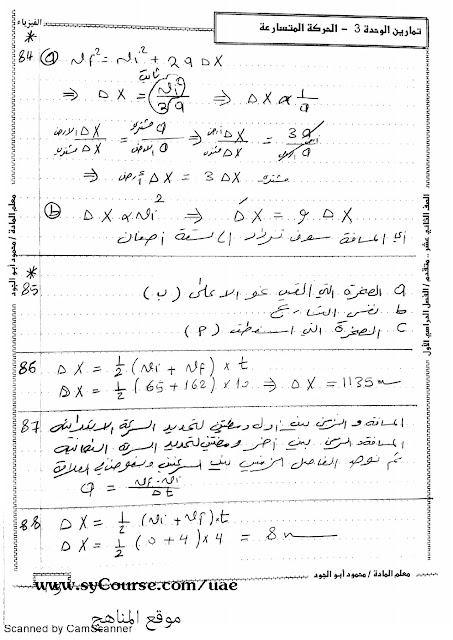 الفيزياء
تمارين الوحدة 3 - الحركة المتسارعة
*
84 a vf² = vi² + 2a ΔX
ثابتة
⇒ ΔX = vi² / 2a ⇒ ΔX α 1/a
ΔX الأرض / ΔX مشتري = a مشتري / a الأرض ⇒ ΔX أرض / ΔX مشتري = 3a / a
⇒ ΔX أرض = 3 ΔX مشتري
b ΔX α vi² ⇒ ΔX = 9 ΔX
أي المسافة سوف تزداد إلى تسعة أضعاف
*
85 a الصخرة التي ألقيت نحو الأعلى (ب)
b نفس التسارع
c الصخرة التي (P)
86 ΔX = 1/2 (vi + vf) × t
ΔX = 1/2 (65 + 162) × 10 ⇒ ΔX = 1135 m
87 المسافة والزمن بين أول ومضتين لتحديد السرعة الابتدائية
المسافة والزمن بين آخر ومضتين لتحديد السرعة النهائية
ثم نوجد الفاصل الزمني بين السرعتين ونعوض في العلاقة
a = vf - vi / Δt
88 ΔX = 1/2 (vi + vf) × t
ΔX = 1/2 (0 + 4) × 4 = 8 m
معلم المادة / محمود أبو الجود
الصف الثاني عشر - متقدم / الفصل الدراسي الأول
معلم المادة / محمود أبو الجود
www.syCourse.com/uae
موقع المناهج
Scanned by CamScanner